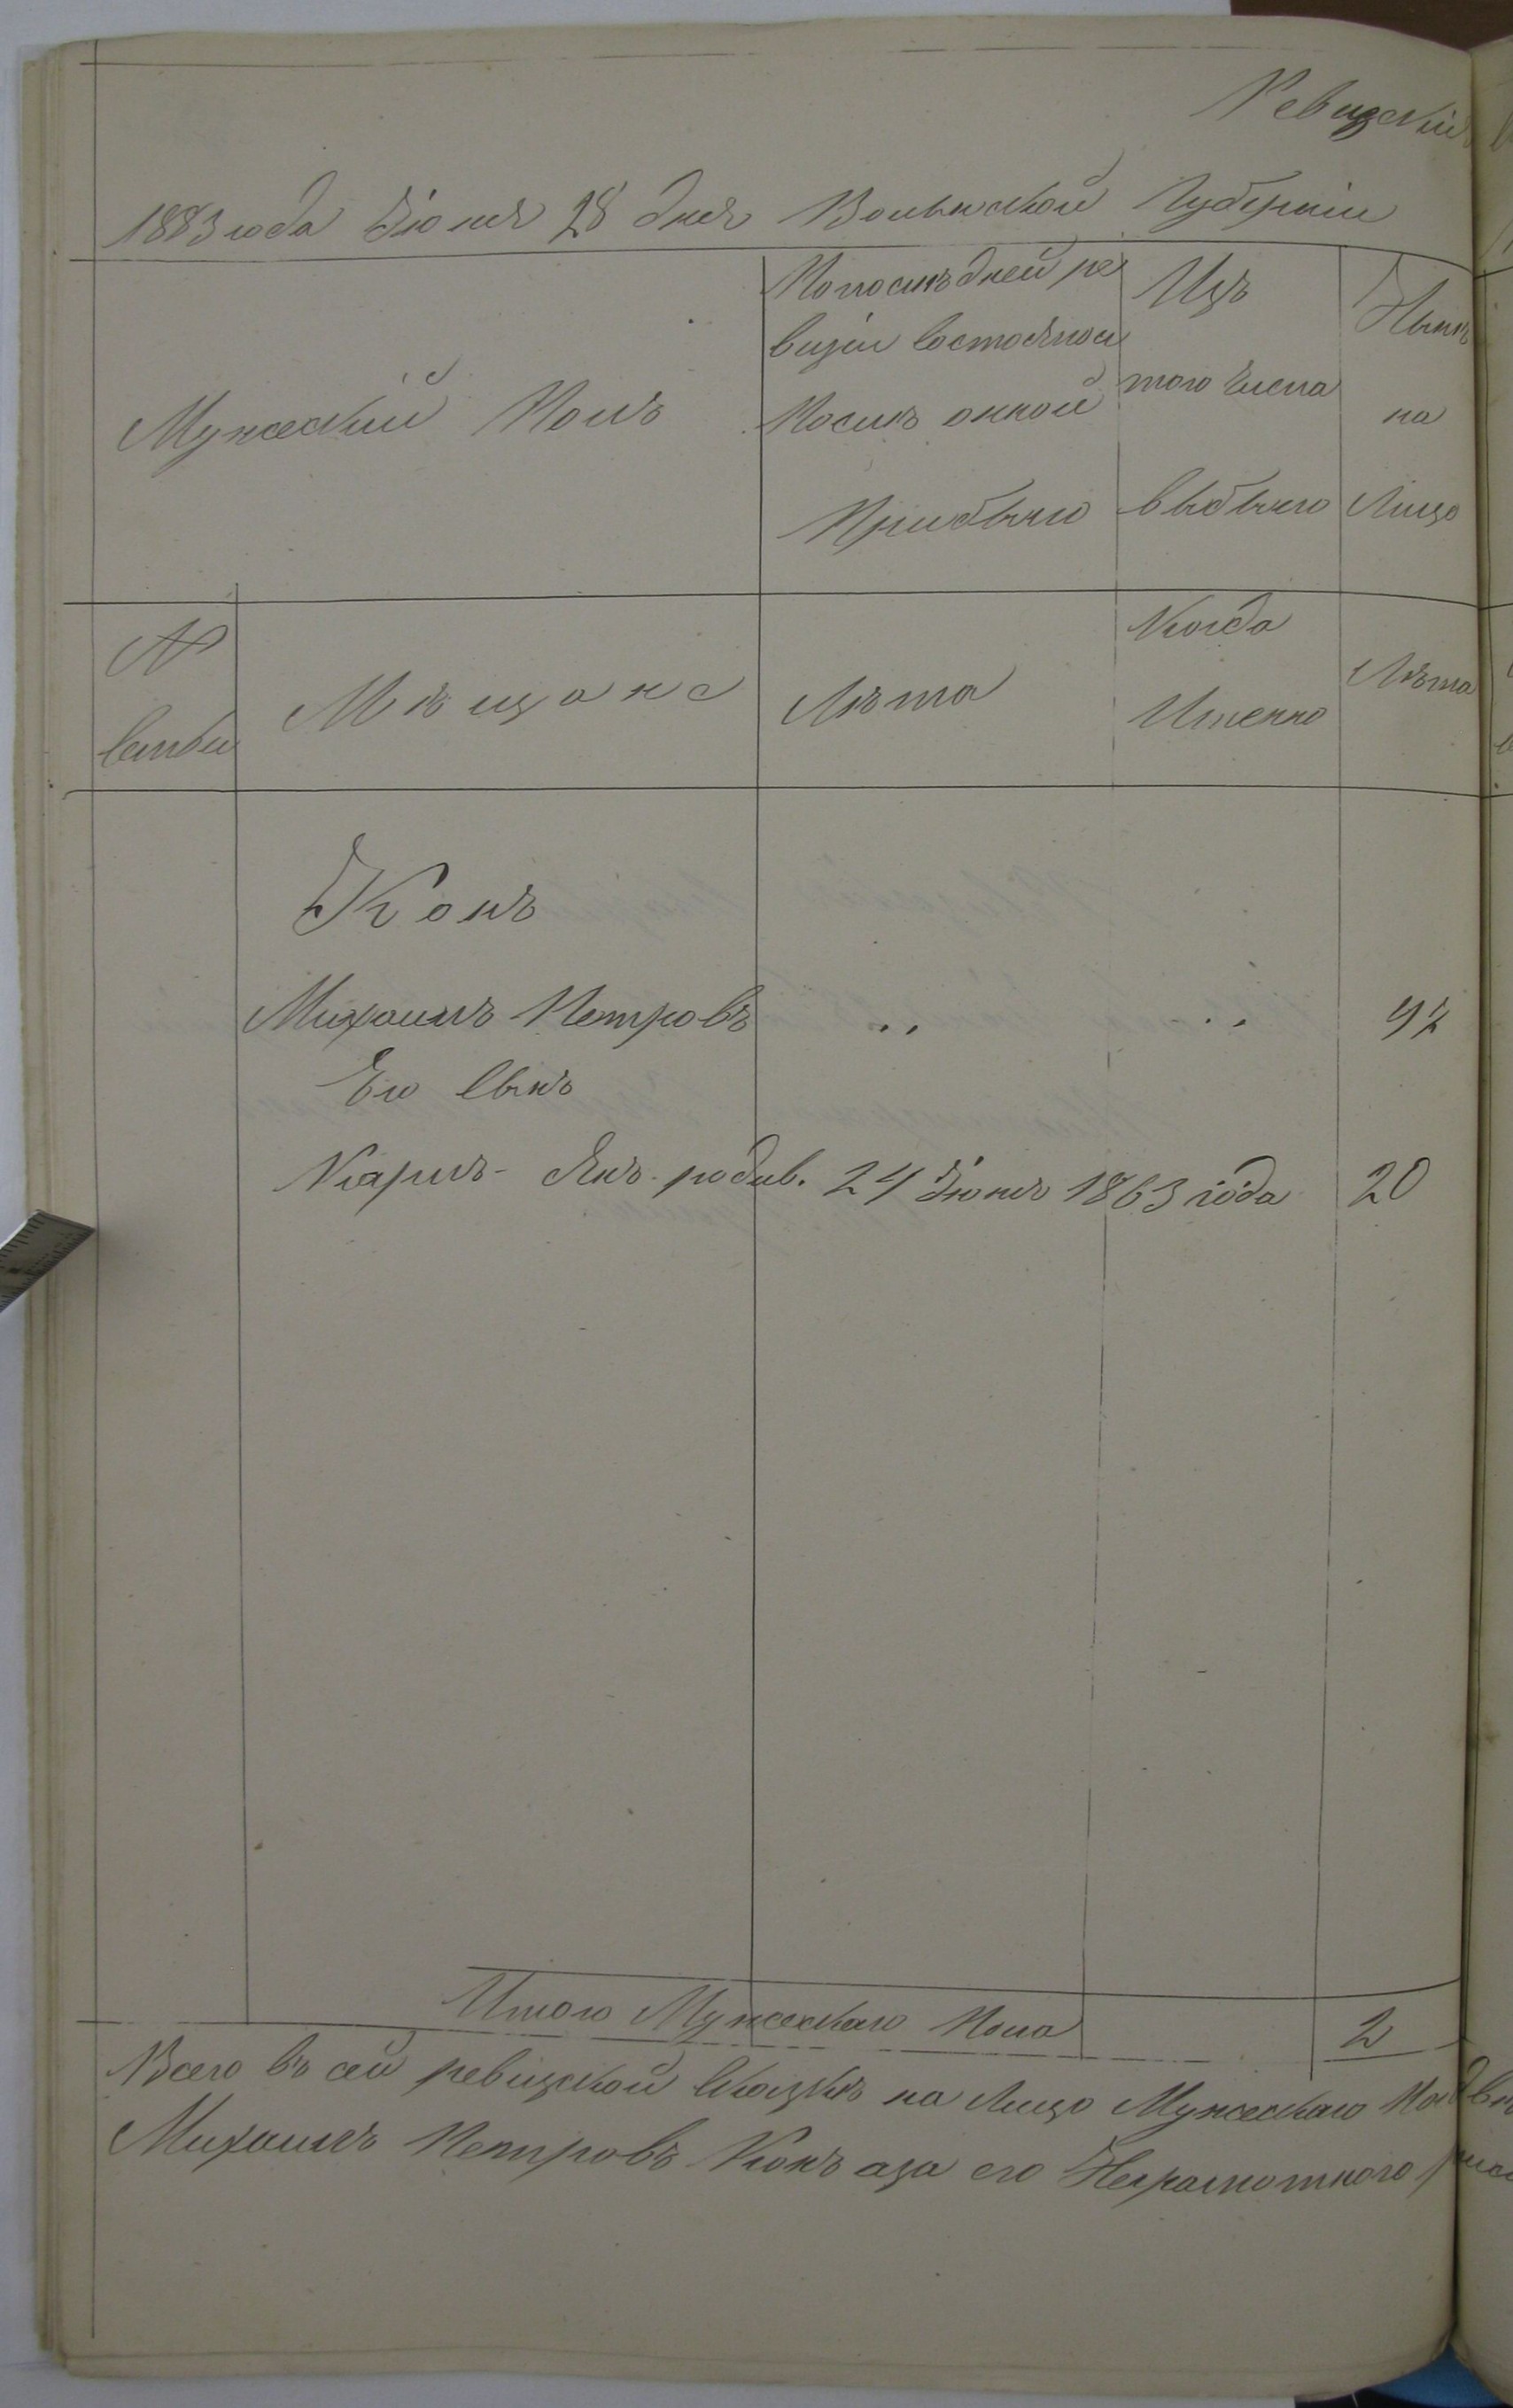 Ревизскія
1883 года Іюня 28 дня Волынской Губерніи
Мужескій Полъ
Попослѣдней ре
визіи состояло и
Послѣ онной
Прибыло
Изъ
того числа
выбыло
Нынѣ
на
Лицо
№
семьи
Мѣщане
Лѣта
Когда
Именно
Лѣта
Конъ
Михаилъ Петровъ „ „ 47
Его сынъ
Карлъ-Янъ родив. 24 Іюня 1863 года 20
Итого Мужескаго Пола 2
Всего въ сей ревизской сказкѣ на лицо Мужескаго
Михаилъ Петровъ Конъ аза его Неграмотного